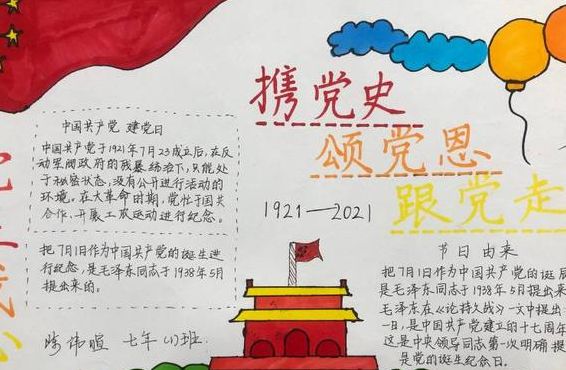 携党史
颂党恩
跟党走
1921—2021
中国共产党 建党日
中国共产党于1921年7月23成立后,在反
动军阀政府的残暴统治下,只能处
于秘密状态,没有公开进行活动的
环境。在大革命时期,党忙于国共
合作、开展工农运动进行纪念。
把7月1日作为中国共产党的诞生进
行纪念,是毛泽东同志于1938年5月
提出来的。
伟暄 七年(1)班
节日由来
把7月1日作为中国共产党的诞辰
是毛泽东同志于1938年5月提出来
毛泽东在《论持久战》一文中提出:
一日,是中国共产党建立的十七周年
这是中央领导同志第一次明确提
是党的诞生纪念日。